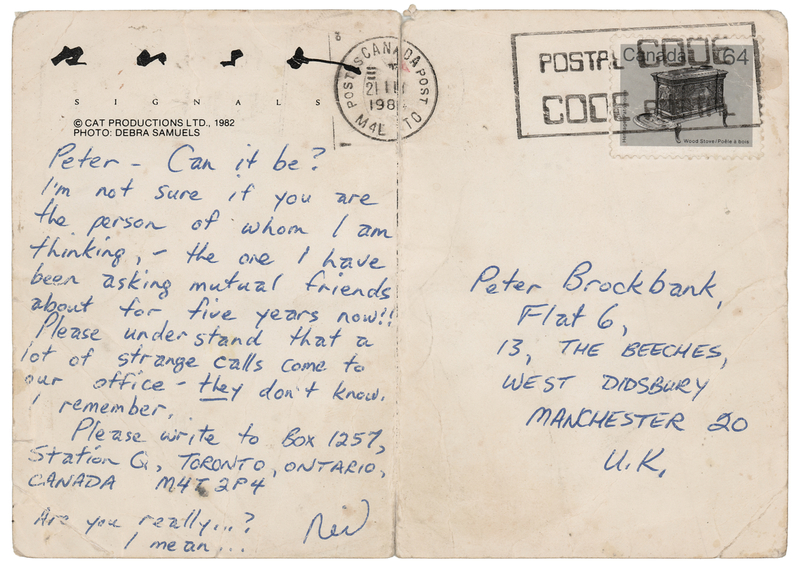 SIGNALS
© CAT PRODUCTIONS LTD., 1982
PHOTO: DEBRA SAMUELS
Peter – Can it be?
I'm not sure if you are
the person of whom I am
thinking, – the one I have
been asking mutual friends
about for five years now!!
Please understand that a
lot of strange calls come to
our office – they don't know.
I remember.
Please write to Box 1257,
Station Q, TORONTO, ONTARIO,
CANADA M4T 2P4
Are you really...?
I mean...
Neil
POSTES CANADA POST
21
198
M4L TO
POSTAL CODE
CODE POSTAL
Canada 64
Wood Stove / Poêle à bois
Peter Brockbank,
Flat 6,
13, THE BEECHES,
WEST DIDSBURY
MANCHESTER 20
U.K.